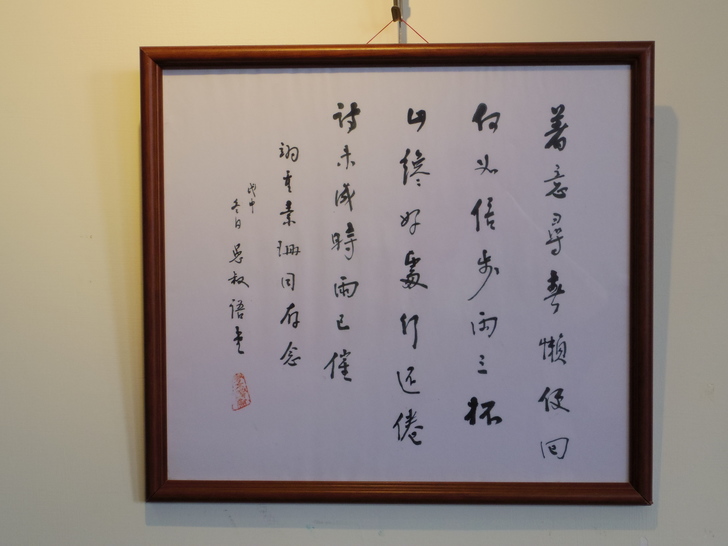 著意尋春懶便回
何如信步兩三杯
山纔好處行還倦
詩未成時雨已催
翊重素珊同存念
丙申
冬日 愚叔語堂